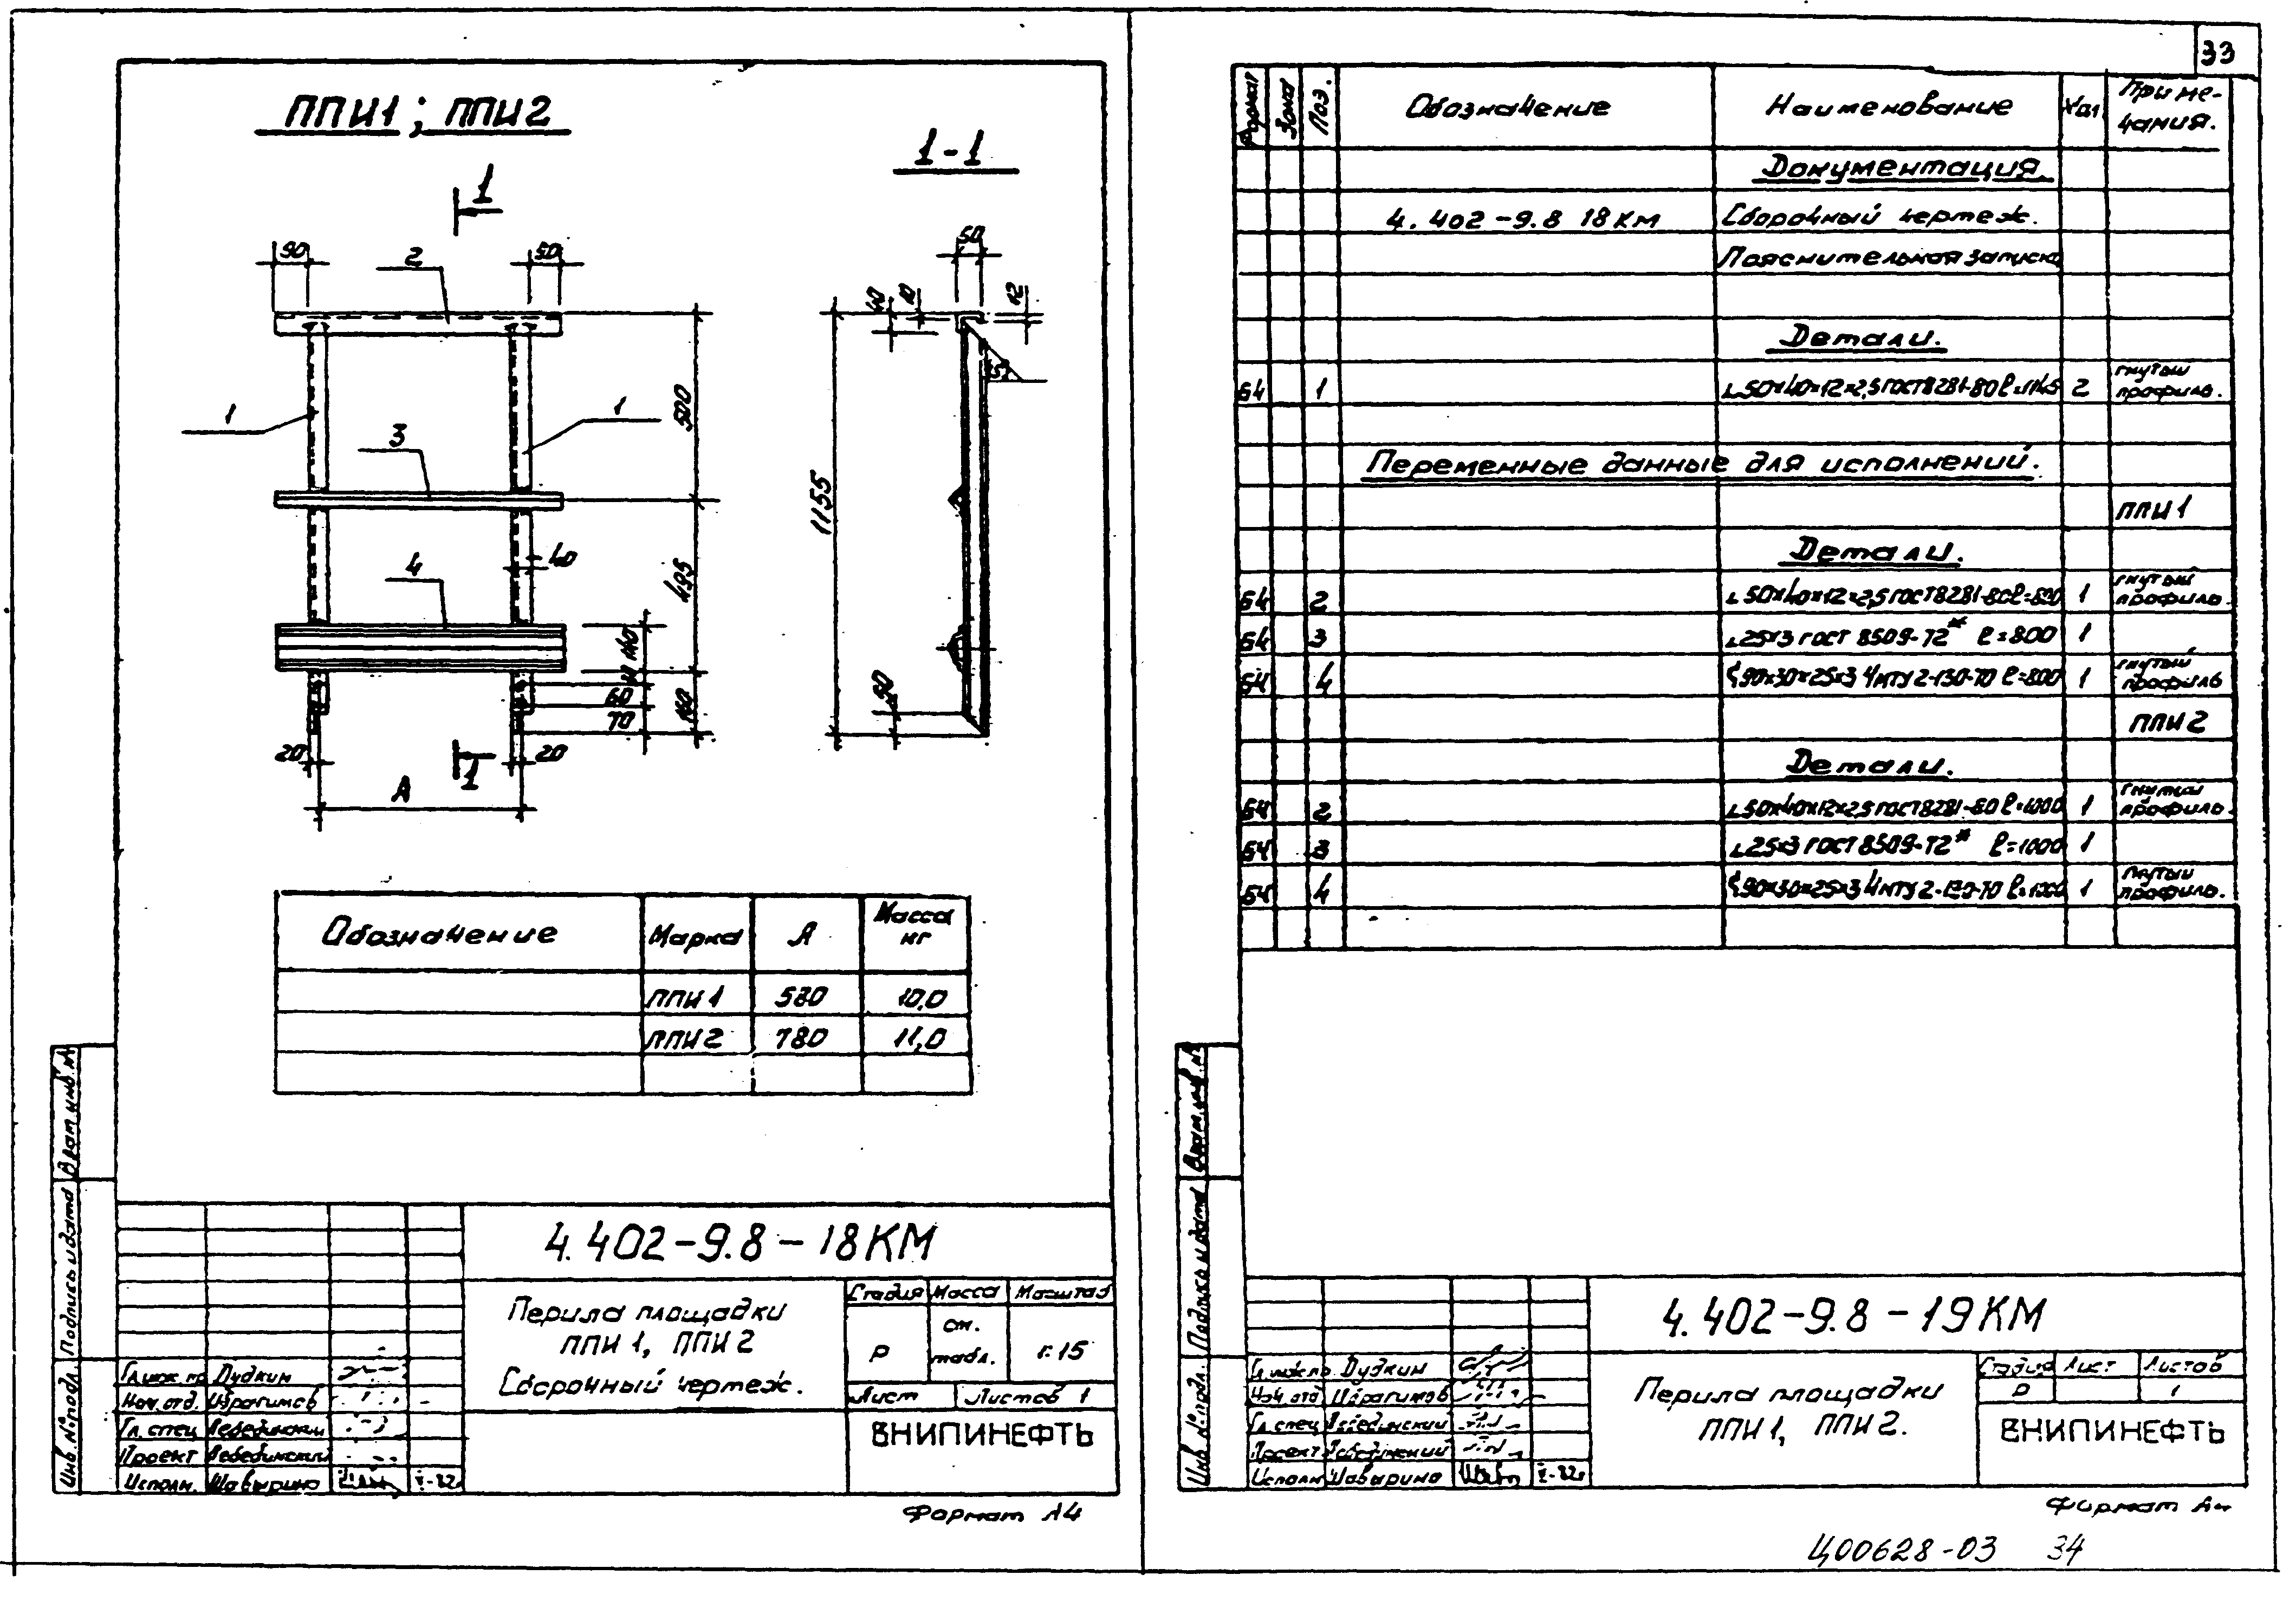 33
ППИ1; ППИ2
1-1
1
90
2
50
50
40
10
12
1
3
1
500
1155
4
40
495
140
60
70
160
60
20
1
20
А
Обозначение Марка А Масса кг
ППИ 1 580 10,0
ППИ 2 780 11,0
Взам. инв. №
Подпись и дата
Инв. № подл.
4.402-9.8-18КМ
Перила площадки
ППИ 1, ППИ 2
Сборочный чертеж.
Стадия Масса Масштаб
Р см. табл. 1:15
Лист Листов 1
ВНИПИНЕФТЬ
Гл.инж.пр Дудкин
Нач. отд. Ибрагимов
Гл. спец Лебединский
Проект Лебединский
Исполн. Шавырина
Формат А4
Формат Зона Поз. Обозначение Наименование Кол Примечания.
Документация
4.402-9.8 18КМ Сборочный чертеж.
Пояснительная записка
Детали.
БЧ 1 ∟50×40×12×2,5 ГОСТ 8281-80 ℓ=1145 2 гнутый профиль.
Переменные данные для исполнений.
ППИ 1
Детали.
БЧ 2 ∟50×40×12×2,5 ГОСТ 8281-80 ℓ=800 1 гнутый профиль.
БЧ 3 ∟25×3 ГОСТ 8509-72* ℓ=800 1
БЧ 4 90×30×25×3 ЧМТУ 2-130-70 ℓ=800 1 гнутый профиль
ППИ 2
Детали.
БЧ 2 ∟50×40×12×2,5 ГОСТ 8281-80 ℓ=1000 1 гнутый профиль.
БЧ 3 ∟25×3 ГОСТ 8509-72* ℓ=1000 1
БЧ 4 90×30×25×3 ЧМТУ 2-130-70 ℓ=1000 1 гнутый профиль.
Взам. инв. №
Подпись и дата
Инв. № подл.
4.402-9.8-19КМ
Перила площадки
ППИ 1, ППИ 2.
Стадия Лист Листов
Р 1
ВНИПИНЕФТЬ
Гл.инж.пр. Дудкин
Нач. отд Ибрагимов
Гл. спец Лебединский
Проект Лебединский
Исполн Шавырина
Формат А4
Ц00628-03 34